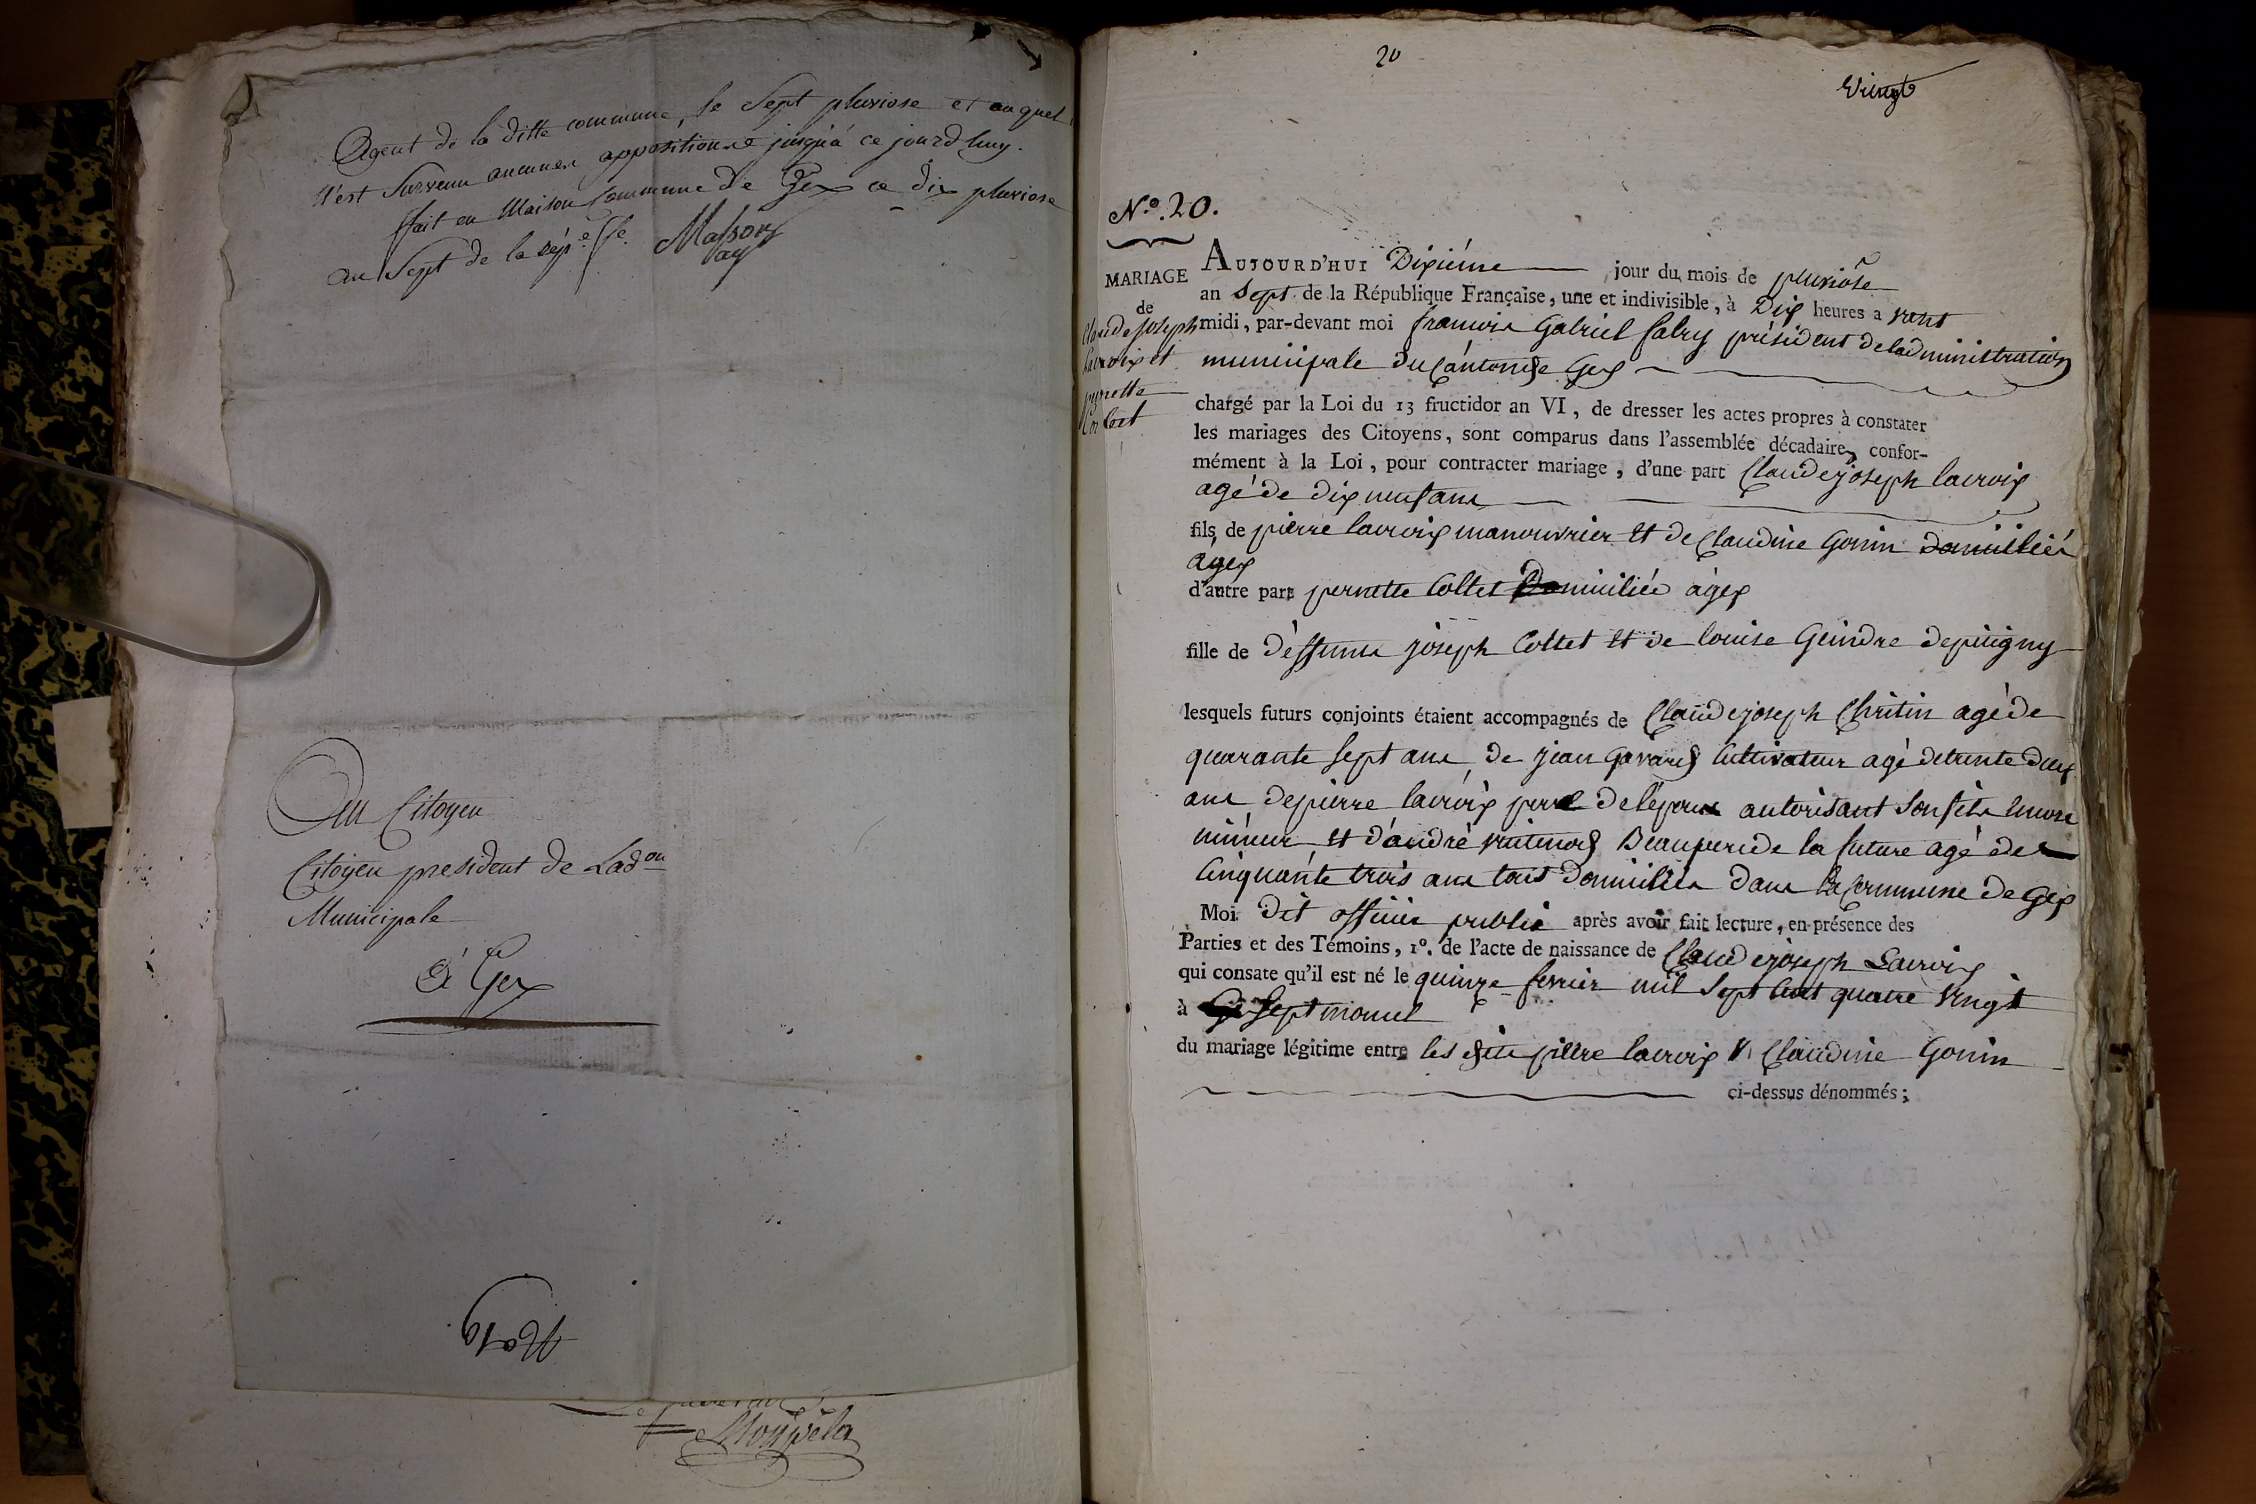 Agent de la ditte commune, le Sept pluviose et auquel
n'est Survenu aucunes appositionne jusqu'a ce jourd'huy.
ffait en Maison Commune de Gex ce dix pluviose
an Sept de la rép.e f.se Masson
ag
Au Citoyen
Citoyen president de Lad.on
Municipale
à Gex
N.o 19
Monpela
20
Vingt
N.o 20.
MARIAGE
de
Claude joseph
Lacroix et
pernette
Collet
AUJOURD'HUI Dixiéme jour du mois de pluviôse
an Sept de la République Française, une et indivisible, à Dix heures a vant
midi, par-devant moi francois Gabriel fabry président de ladministration
municipale Du Canton de Gex
chargé par la Loi du 13 fructidor an VI, de dresser les actes propres à constater
les mariages des Citoyens, sont comparus dans l'assemblée décadaire, confor-
mément à la Loi, pour contracter mariage, d'une part Claude joseph lacroix
agé de dix neuf ans
fils de pierre lacroix manouvrier et de Claudine Gonin domiciliés
àgex
d'autre part pernette Collet Domiciliée àgex
fille de déffunts joseph Collet et de louise Geindre de
lesquels futurs conjoints étaient accompagnés de Claude joseph Chritin agé de
quarante sept ans, de jean Gavard Cultivateur agé de trente deux
ans de pierre lacroix pere de l'époux autorisant son fils encore
mineur et d'andré Beaupere de la future agé de
Cinquante trois ans tous domiciliés dans la Commune de Gex
Moi dit officier public après avoir fait lecture, en présence des
Parties et des Témoins, 1º. de l'acte de naissance de Claude joseph Lacroix
qui consate qu'il est né le quinze fevrier mil sept cent quatre vingt
à Septmoncel
du mariage légitime entre les dits pierre lacroix & Claudine Gonin
ci-dessus dénommés;